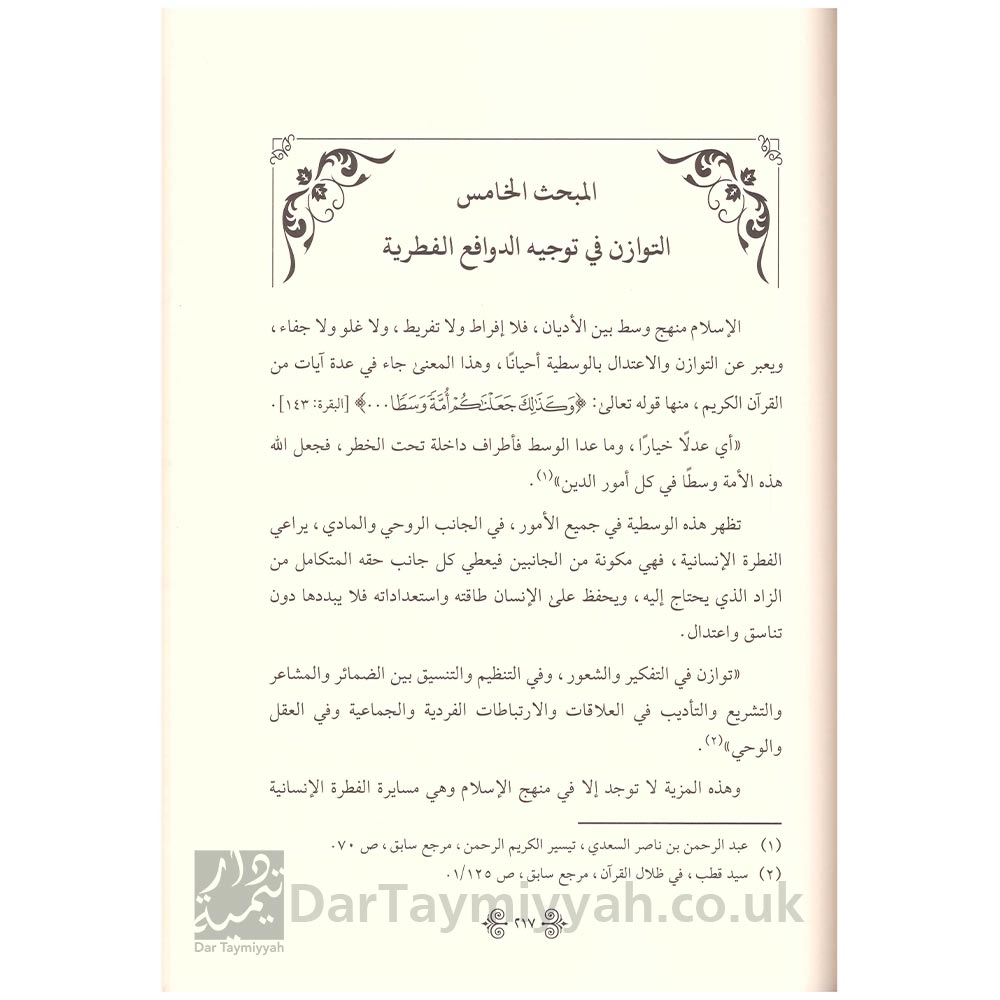 المبحث الخامس
التوازن في توجيه الدوافع الفطرية
الإسلام منهج وسط بين الأديان، فلا إفراط ولا تفريط، ولا غلو ولا جفاء،
ويعبر عن التوازن والاعتدال بالوسطية أحيانًا، وهذا المعنىٰ جاء في عدة آيات من
القرآن الكريم، منها قوله تعالىٰ: ﴿وَكَذَٰلِكَ جَعَلْنَٰكُمْ أُمَّةً وَسَطًا...﴾ [البقرة: ١٤٣].
«أي عدلًا خيارًا، وما عدا الوسط فأطراف داخلة تحت الخطر، فجعل الله
هذه الأمة وسطًا في كل أمور الدين»(١).
تظهر هذه الوسطية في جميع الأمور، في الجانب الروحي والمادي، يراعي
الفطرة الإنسانية، فهي مكونة من الجانبين فيعطي كل جانب حقه المتكامل من
الزاد الذي يحتاج إليه، ويحفظ علىٰ الإنسان طاقته واستعداداته فلا يبددها دون
تناسق واعتدال.
«توازن في التفكير والشعور، وفي التنظيم والتنسيق بين الضمائر والمشاعر
والتشريع والتأديب في العلاقات والارتباطات الفردية والجماعية وفي العقل
والوحي»(٢).
وهذه المزية لا توجد إلا في منهج الإسلام وهي مسايرة الفطرة الإنسانية
(١) عبد الرحمن بن ناصر السعدي، تيسير الكريم الرحمن، مرجع سابق، ص ٧٠.
(٢) سيد قطب، في ظلال القرآن، مرجع سابق، ص ١/١٢٥.
٢١٧
دار
تيمية
Dar Taymiyyah
DarTaymiyyah.co.uk